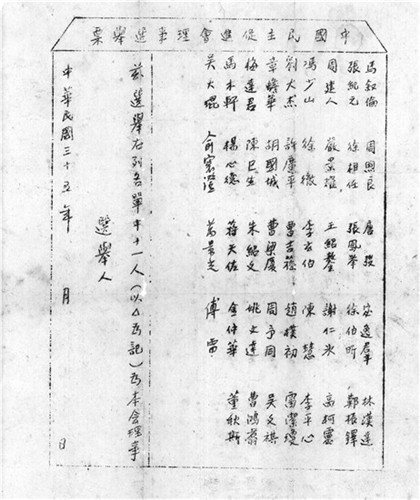 中國民主促進會理事選舉票
馬叙倫 周煦良 唐弢 宓逸羣 林漢達
張紀元 徐相任 張鳳舉 徐伯昕 鄭振鐸
周建人 嚴景耀 王紹鏊 謝仁冰 高柯靈
馮少山 徐徹 李玄伯 陳慧 李平心
劉大杰 許廣平 曹吉 趙樸初 雷潔瓊
章蟾華 胡國城 曹梁厦 周予同 吳文祺
梅達君 陳巳生 朱紹文 姚文達 曹鴻翥
馬木軒 楊心德 蔣天佐 金仲華 董秋斯
吳大琨 俞寰澄 萬景光 傅雷
兹選舉右列名單中十一人（以△為記）為本會理事
選舉人
中華民國三十五年 月 日